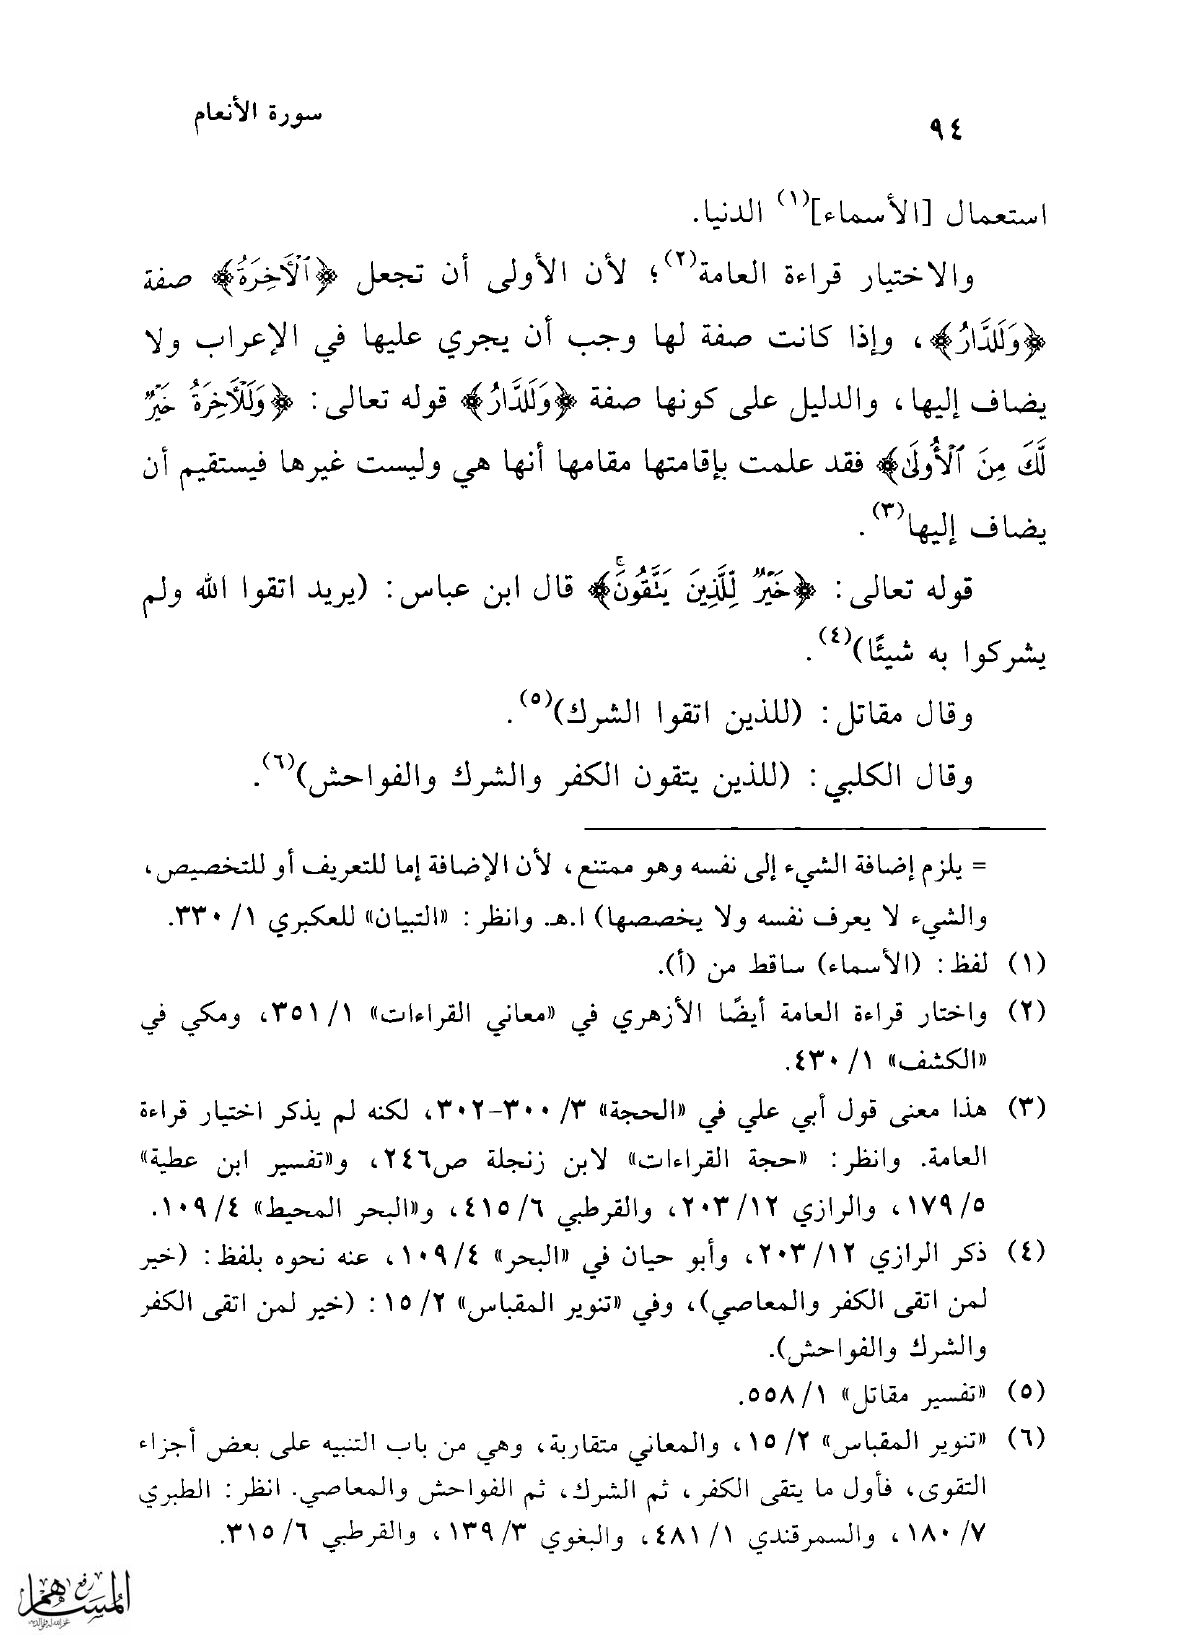 سورة الأنعام
٩٤
استعمال [الأسماء](١) الدنيا.
والاختيار قراءة العامة(٢)؛ لأن الأولى أن تجعل ﴿ٱلْأَخِرَةُ﴾ صفة
﴿وَلَلدَّارُ﴾، وإذا كانت صفة لها وجب أن يجري عليها في الإعراب ولا
يضاف إليها، والدليل على كونها صفة ﴿وَلَلدَّارُ﴾ قوله تعالى: ﴿وَلَلْأَخِرَةُ خَيْرٌ
لَّكَ مِنَ ٱلْأُولَىٰ﴾ فقد علمت بإقامتها مقامها أنها هي وليست غيرها فيستقيم أن
يضاف إليها(٣).
قوله تعالى: ﴿خَيْرٌ لِّلَّذِينَ يَتَّقُونَۚ﴾ قال ابن عباس: (يريد اتقوا الله ولم
يشركوا به شيئًا)(٤).
وقال مقاتل: (للذين اتقوا الشرك)(٥).
وقال الكلبي: (للذين يتقون الكفر والشرك والفواحش)(٦).
= يلزم إضافة الشيء إلى نفسه وهو ممتنع، لأن الإضافة إما للتعريف أو للتخصيص،
والشيء لا يعرف نفسه ولا يخصصها) ا.هـ. وانظر: «التبيان» للعكبري ١/ ٣٣٠.
(١) لفظ: (الأسماء) ساقط من (أ).
(٢) واختار قراءة العامة أيضًا الأزهري في «معاني القراءات» ١/ ٣٥١، ومكي في
«الكشف» ١/ ٤٣٠.
(٣) هذا معنى قول أبي علي في «الحجة» ٣/ ٣٠٠-٣٠٢، لكنه لم يذكر اختيار قراءة
العامة. وانظر: «حجة القراءات» لابن زنجلة ص٢٤٦، و«تفسير ابن عطية»
٥/ ١٧٩، والرازي ١٢/ ٢٠٣، والقرطبي ٦/ ٤١٥، و«البحر المحيط» ٤/ ١٠٩.
(٤) ذكر الرازي ١٢/ ٢٠٣، وأبو حيان في «البحر» ٤/ ١٠٩، عنه نحوه بلفظ: (خير
لمن اتقى الكفر والمعاصي)، وفي «تنوير المقباس» ٢/ ١٥: (خير لمن اتقى الكفر
والشرك والفواحش).
(٥) «تفسير مقاتل» ١/ ٥٥٨.
(٦) «تنوير المقباس» ٢/ ١٥، والمعاني متقاربة، وهي من باب التنبيه على بعض أجزاء
التقوى، فأول ما يتقى الكفر، ثم الشرك، ثم الفواحش والمعاصي. انظر: الطبري
٧/ ١٨٠، والسمرقندي ١/ ٤٨١، والبغوي ٣/ ١٣٩، والقرطبي ٦/ ٣١٥.